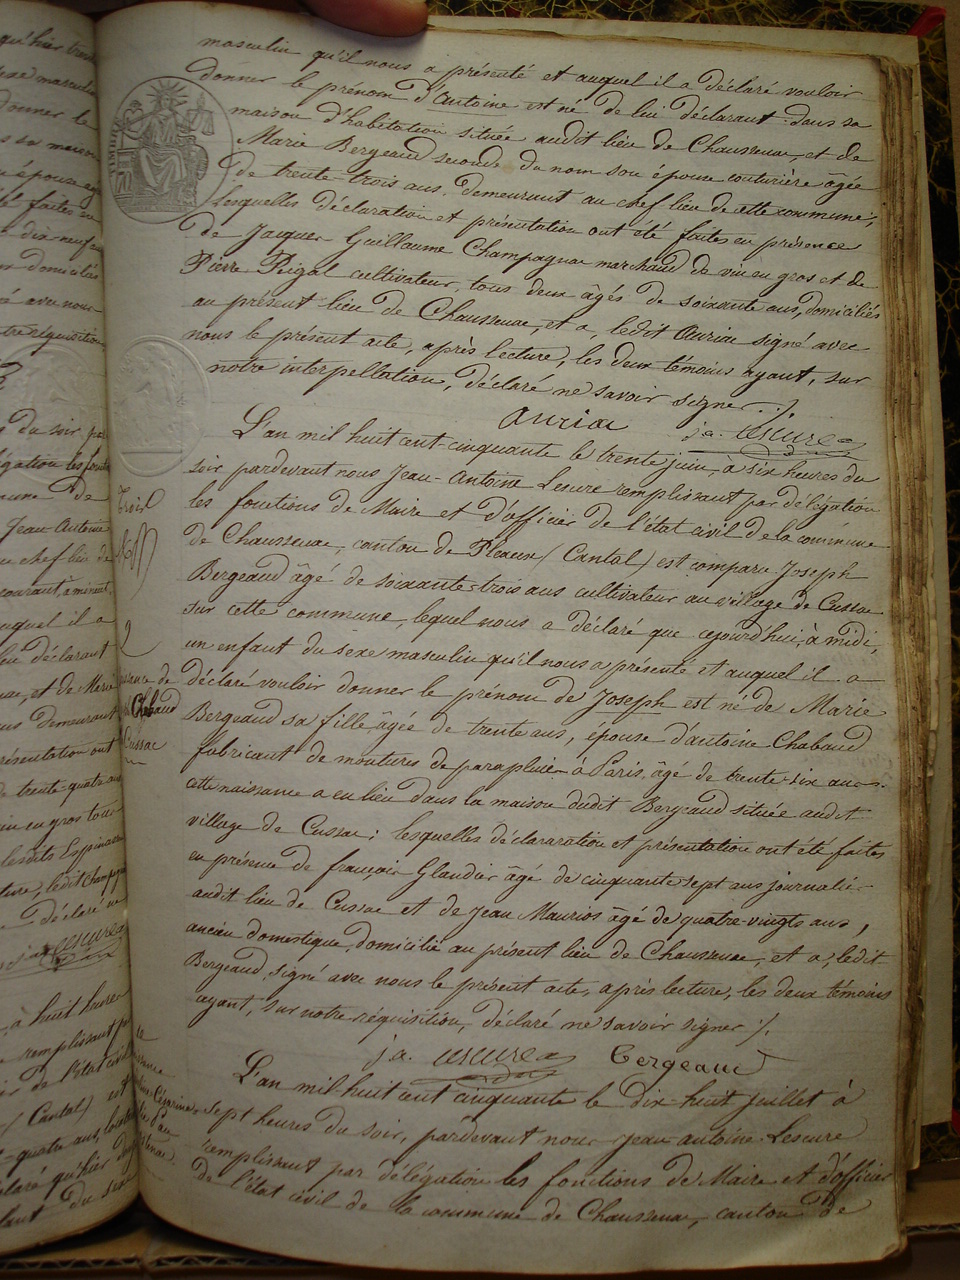 masculin qu'il nous a présenté et auquel il a déclaré vouloir
donner le prénom d'Antoine est né de lui déclarant dans sa
maison d'habitation située audit lieu de Chaussenac, et de
Marie Bergeaud seconde du nom son épouse couturière âgée
de trente-trois ans, demeurant au chef lieu de cette commune;
lesquelles déclaration et présentation ont été faites en présence
de Jacques Guillaume Champagnac marchand de vin en gros et de
Pierre Rigal cultivateur, tous deux âgés de soixante ans, domiciliés
au présent lieu de Chaussenac, et a, ledit Auriac signé avec
nous le présent acte, après lecture, les deux témoins ayant, sur
notre interpellation, déclaré ne savoir signer ./.
auriac j.a. lescure
L'an mil huit cent cinquante le trente juin, à six heures du
soir pardevant nous Jean-Antoine Lescure remplissant par délégation
les fonctions de Maire et d'officier de l'état civil de la commune
de Chaussenac, canton de Pleaux (Cantal) est comparu Joseph
Bergeaud âgé de soixante-trois ans cultivateur au village de Cussac
sur cette commune, lequel nous a déclaré que cejourd'hui, à midi,
un enfant du sexe masculin qu'il nous a présenté et auquel il a
déclaré vouloir donner le prénom de Joseph est né de Marie
Bergeaud sa fille, âgée de trente ans, épouse d'antoine Chabaud
fabricant de montures de parapluie à Paris, âgé de trente-six ans.
cette naissance a eu lieu dans la maison dudit Bergeaud située audit
village de Cussac; lesquelles déclararation et présentation ont été faites
en présence de françois Glaudier âgé de cinquante sept ans journalier
audit lieu de Cussac et de Jean Maurios âgé de quatre-vingts ans,
ancien domestique, domicilié au présent lieu de Chaussenac, et a, ledit
Bergeaud, signé avec nous le présent acte, après lecture, les deux témoins
ayant, sur notre réquisition, déclaré ne savoir signer ./.
j.a. lescure Bergeaud
L'an mil huit cent cinquante le dix-huit juillet à
sept heures du soir, pardevant nous Jean antoine Lescure
remplissant par délégation les fonctions de Maire et d'officier
de l'état civil de la commune de Chaussenac, canton de
Chabaud
Cussac